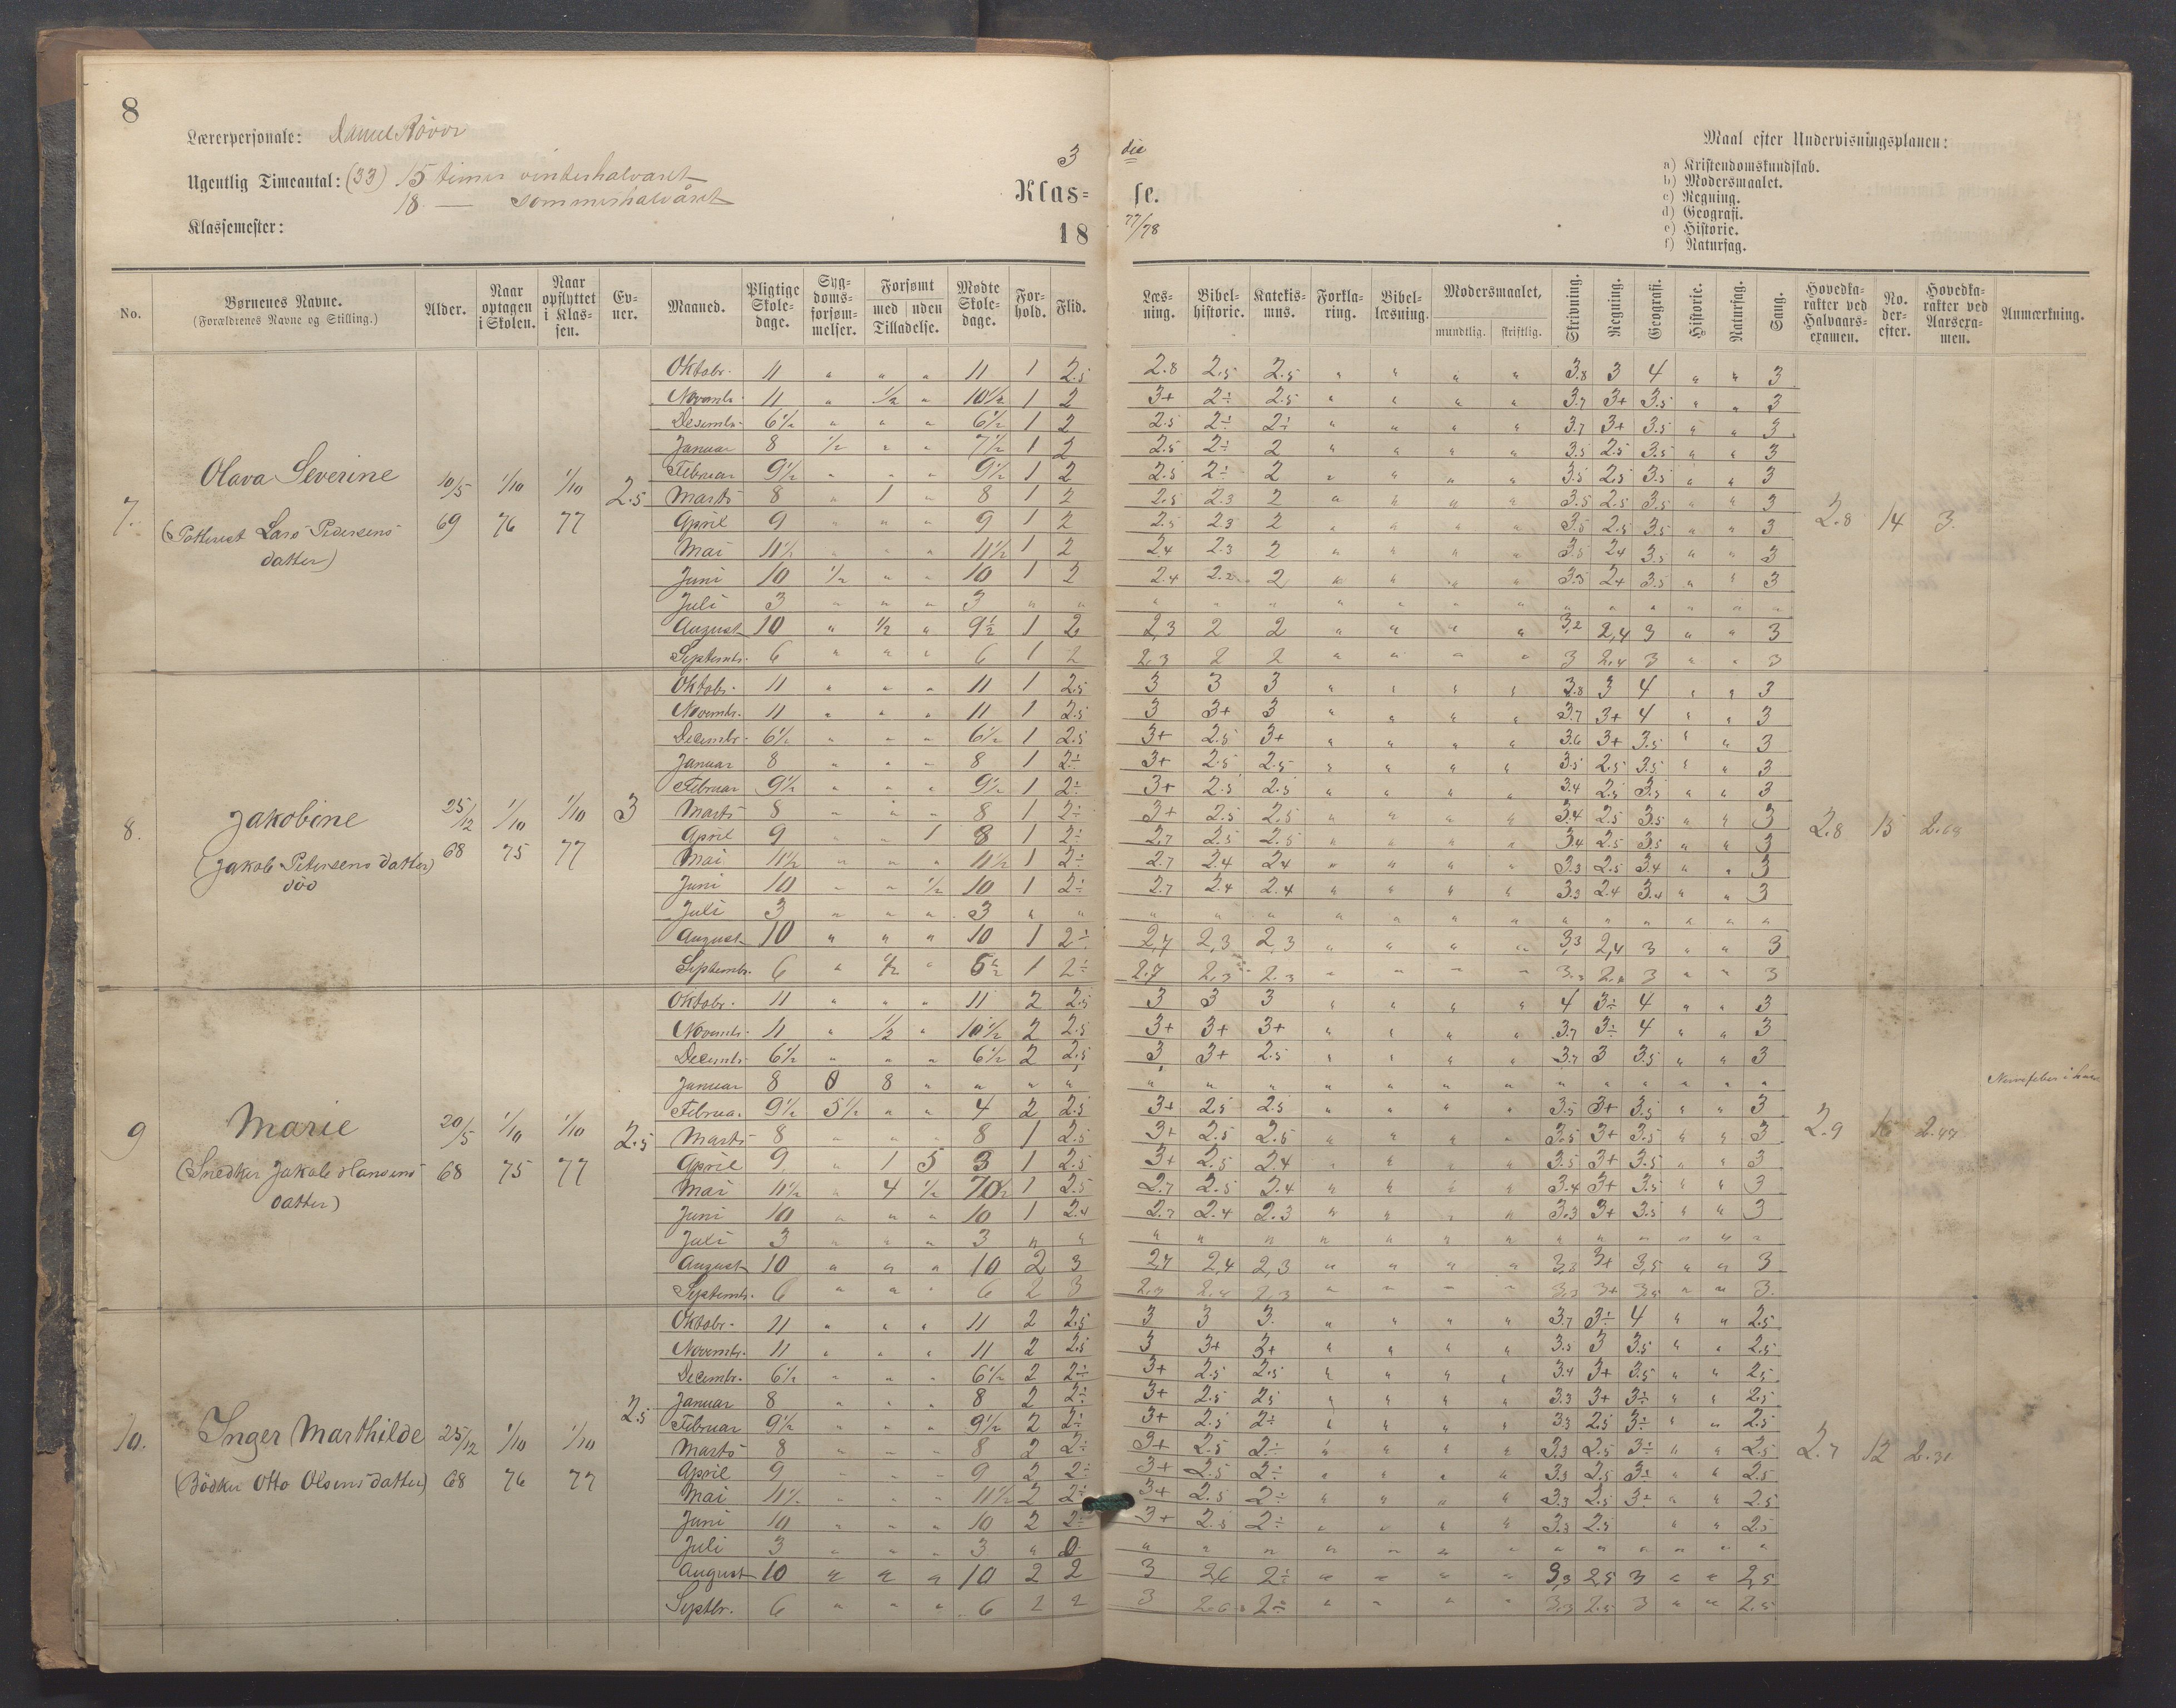 8
Lærerpersonale: Daniel
Ugentlig Timeantal: (33) 15 timer vinterhalvaret
18 — sommerhalvåret
Klassemester:
3 die
Klas= se.
18 77/78
Maal efter Undervisningsplanen:
a) Kristendomskundskab.
b) Modersmaalet.
c) Regning.
d) Geografi.
e) Historie.
f) Naturfag.
No. Børnenes Navne. (Forældrenes Navne og Stilling.) Alder. Naar optagen i Skolen. Naar opflyttet i Klassen. Evner. Maaned. Pligtige Skoledage. Sygdomsforsømmelser. Forsømt med uden Tilladelse. Mødte Skoledage. Forhold. Flid. Læsning. Bibelhistorie. Katekismus. Forklaring. Bibellæsning. Modersmaalet, mundtlig. skriftlig. Skrivning. Regning. Geografi. Historie. Naturfag. Sang. Hovedkarakter ved Halvaarsexamen. No. derefter. Hovedkarakter ved Aarsexamen. Anmærkning.
7. Olava Severine 10/5 69 1/10 76 1/10 77 2.5
Lars Pedersens
datter)
2.8 14 3.
Oktobr. 11 " " " 11 1 2.5 2.8 2.5 2.5 " " " " 3.8 3 4 " " 3
Novembr. 11 " 1/2 " 10 1/2 1 2 3+ 2÷ 2.5 " " " " 3.7 3+ 3.5 " " 3
Desembr. 6 1/2 " " " 6 1/2 1 2 2.5 2÷ 2÷ " " " " 3.7 3+ 3.5 " " 3
Januar 8 1/2 " " 7 1/2 1 2 2.5 2÷ 2 " " " " 3.5 2.5 3.5 " " 3
Februar 9 1/2 " " " 9 1/2 1 2 2.5 2÷ 2 " " " " 3.5 2.5 3.5 " " 3
Marts 8 " 1 " 8 1 2 2.5 2.3 2 " " " " 3.5 2.5 3.5 " " 3
April 9 " " " 9 1 2 2.5 2.3 2 " " " " 3.5 2.5 3.5 " " 3
Mai 11 1/2 " " " 11 1/2 1 2 2.4 2.3 2 " " " " 3.5 2.4 3.5 " " 3
Juni 10 1/2 " " 10 1 2 2.4 2.2 2 " " " " 3.5 2.4 3.5 " " 3
Juli 3 " " " 3 " " " " " " " " " " " " " " "
August 10 " 1/2 " 9 1/2 1 2 2,3 2 2 " " " " 3,2 2,4 3 " " 3
Septembr. 6 " " " 6 1 2 2,3 2 2 " " " " 3 2.4 3 " " 3
8. Jakobine 25/12 68 1/10 75 1/10 77 3
(Jakob Petersens datter)
død
2.8 15
Oktobr. 11 " " " 11 1 2.5 3 3 3 " " " " 3.8 3 4 " " 3
Novembr. 11 " " " 11 1 2.5 3 3+ 3 " " " " 3.7 3+ 4 " " 3
Decembr. 6 1/2 " " " 6 1/2 1 2.5 3+ 2.5 3+ " " " " 3.6 3+ 3.5 " " 3
Januar 8 " " " 8 1 2÷ 3+ 2.5 2.5 " " " " 3.5 2.5 3.5 " " 3
Februar 9 1/2 " " " 9 1/2 1 2÷ 3+ 2.5 2.5 " " " " 3.4 2.5 3.5 " " 3
Marts 8 " " " 8 1 2÷ 3+ 2.5 2.5 " " " " 3.4 2.5 3.5 " " 3
April 9 " " 1 8 1 2÷ 2.7 2.5 2.5 " " " " 3.4 2.5 3.5 " " 3
Mai 11 1/2 " " " 11 1/2 1 2÷ 2.7 2.4 2.4 " " " " 3.3 2.5 3.4 " " 3
Juni 10 " " 1/2 10 1 2÷ 2.7 2.4 2.4 " " " " 3.3 2.4 3.4 " " 3
Juli 3 " " " 3 " " " " " " " " " " " " " " "
August 10 " " " 10 1 2÷ 2,7 2,3 2,3 " " " " 3,3 2,4 3 " " 3
Septembr. 6 " 1/2 " 5 1/2 1 2÷ 2.7 2.3 2.3 " " " " 3.3 2.4 3 " " 3
9 Marie 20/5 68 1/10 75 1/10 77 2.5
(Snedker Jakob Hansens
datter)
2.9
Oktobr. 11 " " " 11 2 2.5 3 3 3 " " " " 4 3÷ 4 " " 3
Novembr. 11 " 1/2 " 10 1/2 2 2.5 3+ 3+ 3+ " " " " 3.7 3÷ 4 " " 3
Decembr. 6 1/2 " " " 6 1/2 2 2.5 3 3+ 2.5 " " " " 3.7 3 3.5 " " 3
Januar 8 0 8 " " " " " " " " " " " " " " " " "
Februar 9 1/2 5 1/2 " " 4 2 2.5 3+ 2.5 2.5 " " " " 3.5 3+ 3.5 " " 3
Marts 8 " " " 8 1 2.5 3+ 2.5 2.5 " " " " 3.5 3+ 3.5 " " 3
April 9 " 1 5 3 1 2.5 3+ 2.5 2.4 " " " " 3.5 3+ 3.5 " " 3
Mai 11 1/2 " 4 1/2 1 2.5 2.7 2.5 2.4 " " " " 3.4 3+ 3.5 " " 3
Juni 10 " " " 10 1 2.4 2.7 2.4 2.3 " " " " 3.3 3+ 3.5 " " 3
Juli 3 " " " 3 " " " " " " " " " " " " " " "
August 10 " " " 10 2 3 2,7 2,4 2,3 " " " " 3,3 3+ 3,5 " " 3
Septembr. 6 " " " 6 2 3 2,4 2,3 " " " " 3,3 3+ " " 3.
10. Inger Marthilde 25/12 68 1/10 76 1/10 77 2.5
(Bödker Otto Olsens datter)
2.7 12
Oktobr. 11 " " " 11 2 2.5 3 3 3. " " " " 3.7 3÷ 4 " " 2.5
Novembr. 11 " " " 11 2 2.5 3 3+ 3+ " " " " 3.5 3 3.5 " " 2.5
Decembr. 6 1/2 " " " 6 1/2 2 2÷ 3+ 2.5 2.5 " " " " 3.4 3+ 3.5 " " 2.5
Januar 8 " " " 8 2 2÷ 3+ 2.5 2.5 " " " " 3.3 3+ 3÷ " " 2.5
Februar 9 1/2 " " " 9 1/2 2 2÷ 3+ 2.5 2÷ " " " " 3.3 2.5 3÷ " " 2.5
Marts 8 " " " 8 2 2÷ 3+ 2.5 2÷ " " " " 3.3 2.5 3÷ " " 2.5
April 9 " " " 9 2 2÷ 3+ 2.5 2÷ " " " " 3.3 2.5 3÷ " " 2.5
Mai 11 1/2 " " " 11 1/2 2 2÷ 3+ 2.5 2÷ " " " " 3.3 2.5 3÷ " " 2.5
Juni 10 " " " 10 2 2÷ 3+ 2.5 2÷ " " " " 3.3 2.5 " " 2.5
Juli 3 " " " 3 " 0 " " " " " " " " " " " " "
August 10 " " " 10 2 2 3 2,6 2÷ " " " " 3,3 2,5 3 " " 2,5
Septbr. 6 " " " 6 2 2 3 2.6 2÷ " " " " 3.3 2.5 3 " " 2.5